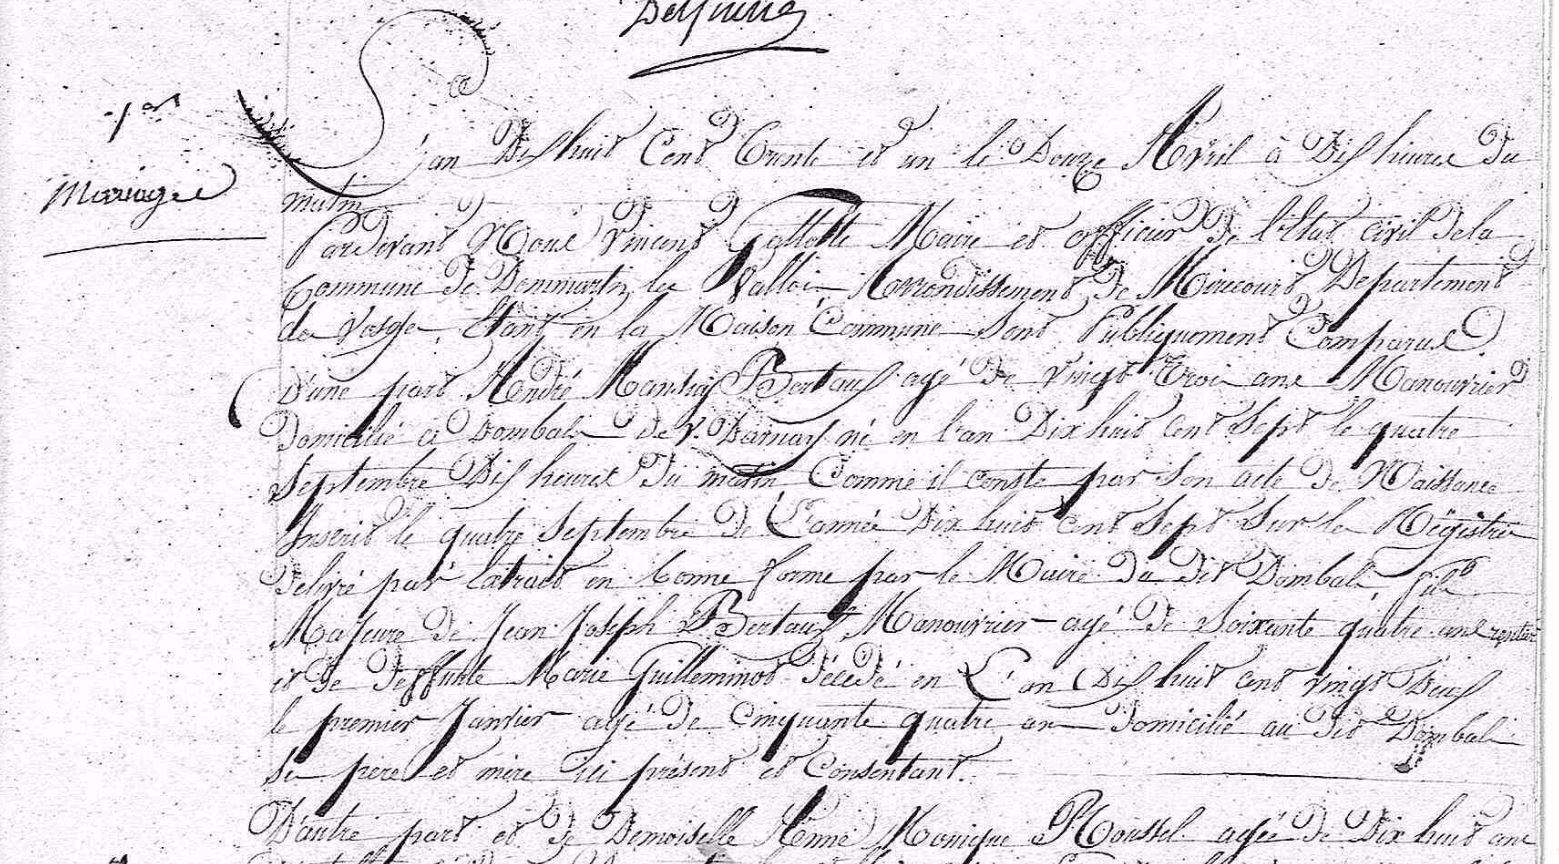 1er
Mariage
L'an Dix huit Cent Trente et un le Douze Avril à Dix heures Du
matin
Pardevant Nous Vincent Maire et officier De l'Etat civil Dela
Commune De Dommartin les Valloi Arrondissement De Mirecourt Departement
da Vosge Etant en la Maison Commune Sont Publiquement Comparus
D'une part André Mansuy Bertaux agé De vingt Trois ans Manouvrier
Domicilié a Dombale De.v. Darnay né en l'an Dix huit Cent Sept le quatre
Septembre Dix heures Du matin Comme il conste par Son acte De Naissance
Inscrit le quatre Septembre De L'année Dix huit Cent Sept Sur le Régistre
Delivré par Extrait en bonne forme par le Maire Du Dit Dombale fils
Majeure De Jean Joseph Bertaux Manouvrier agé De Soixante quatre ans
et De Deffunte Marie Guilleminot Décédé en L'an Dix huit cent vingt Deux
le premier Janvier agé De Cinquante quatre an Domicilié au Dit Dombale
Se pere et mere ici présent et Consentant.
D'autre part et De Demoiselle Anne Monique Roussel agée De Dix huit ans